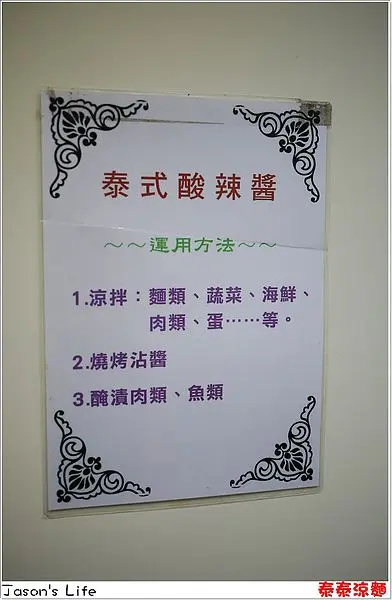 泰式酸辣醬
～～運用方法～～
1.涼拌：麵類、蔬菜、海鮮、
肉類、蛋……等。
2.燒烤沾醬
3.醃漬肉類、魚類
Jason's Life
泰泰涼麵